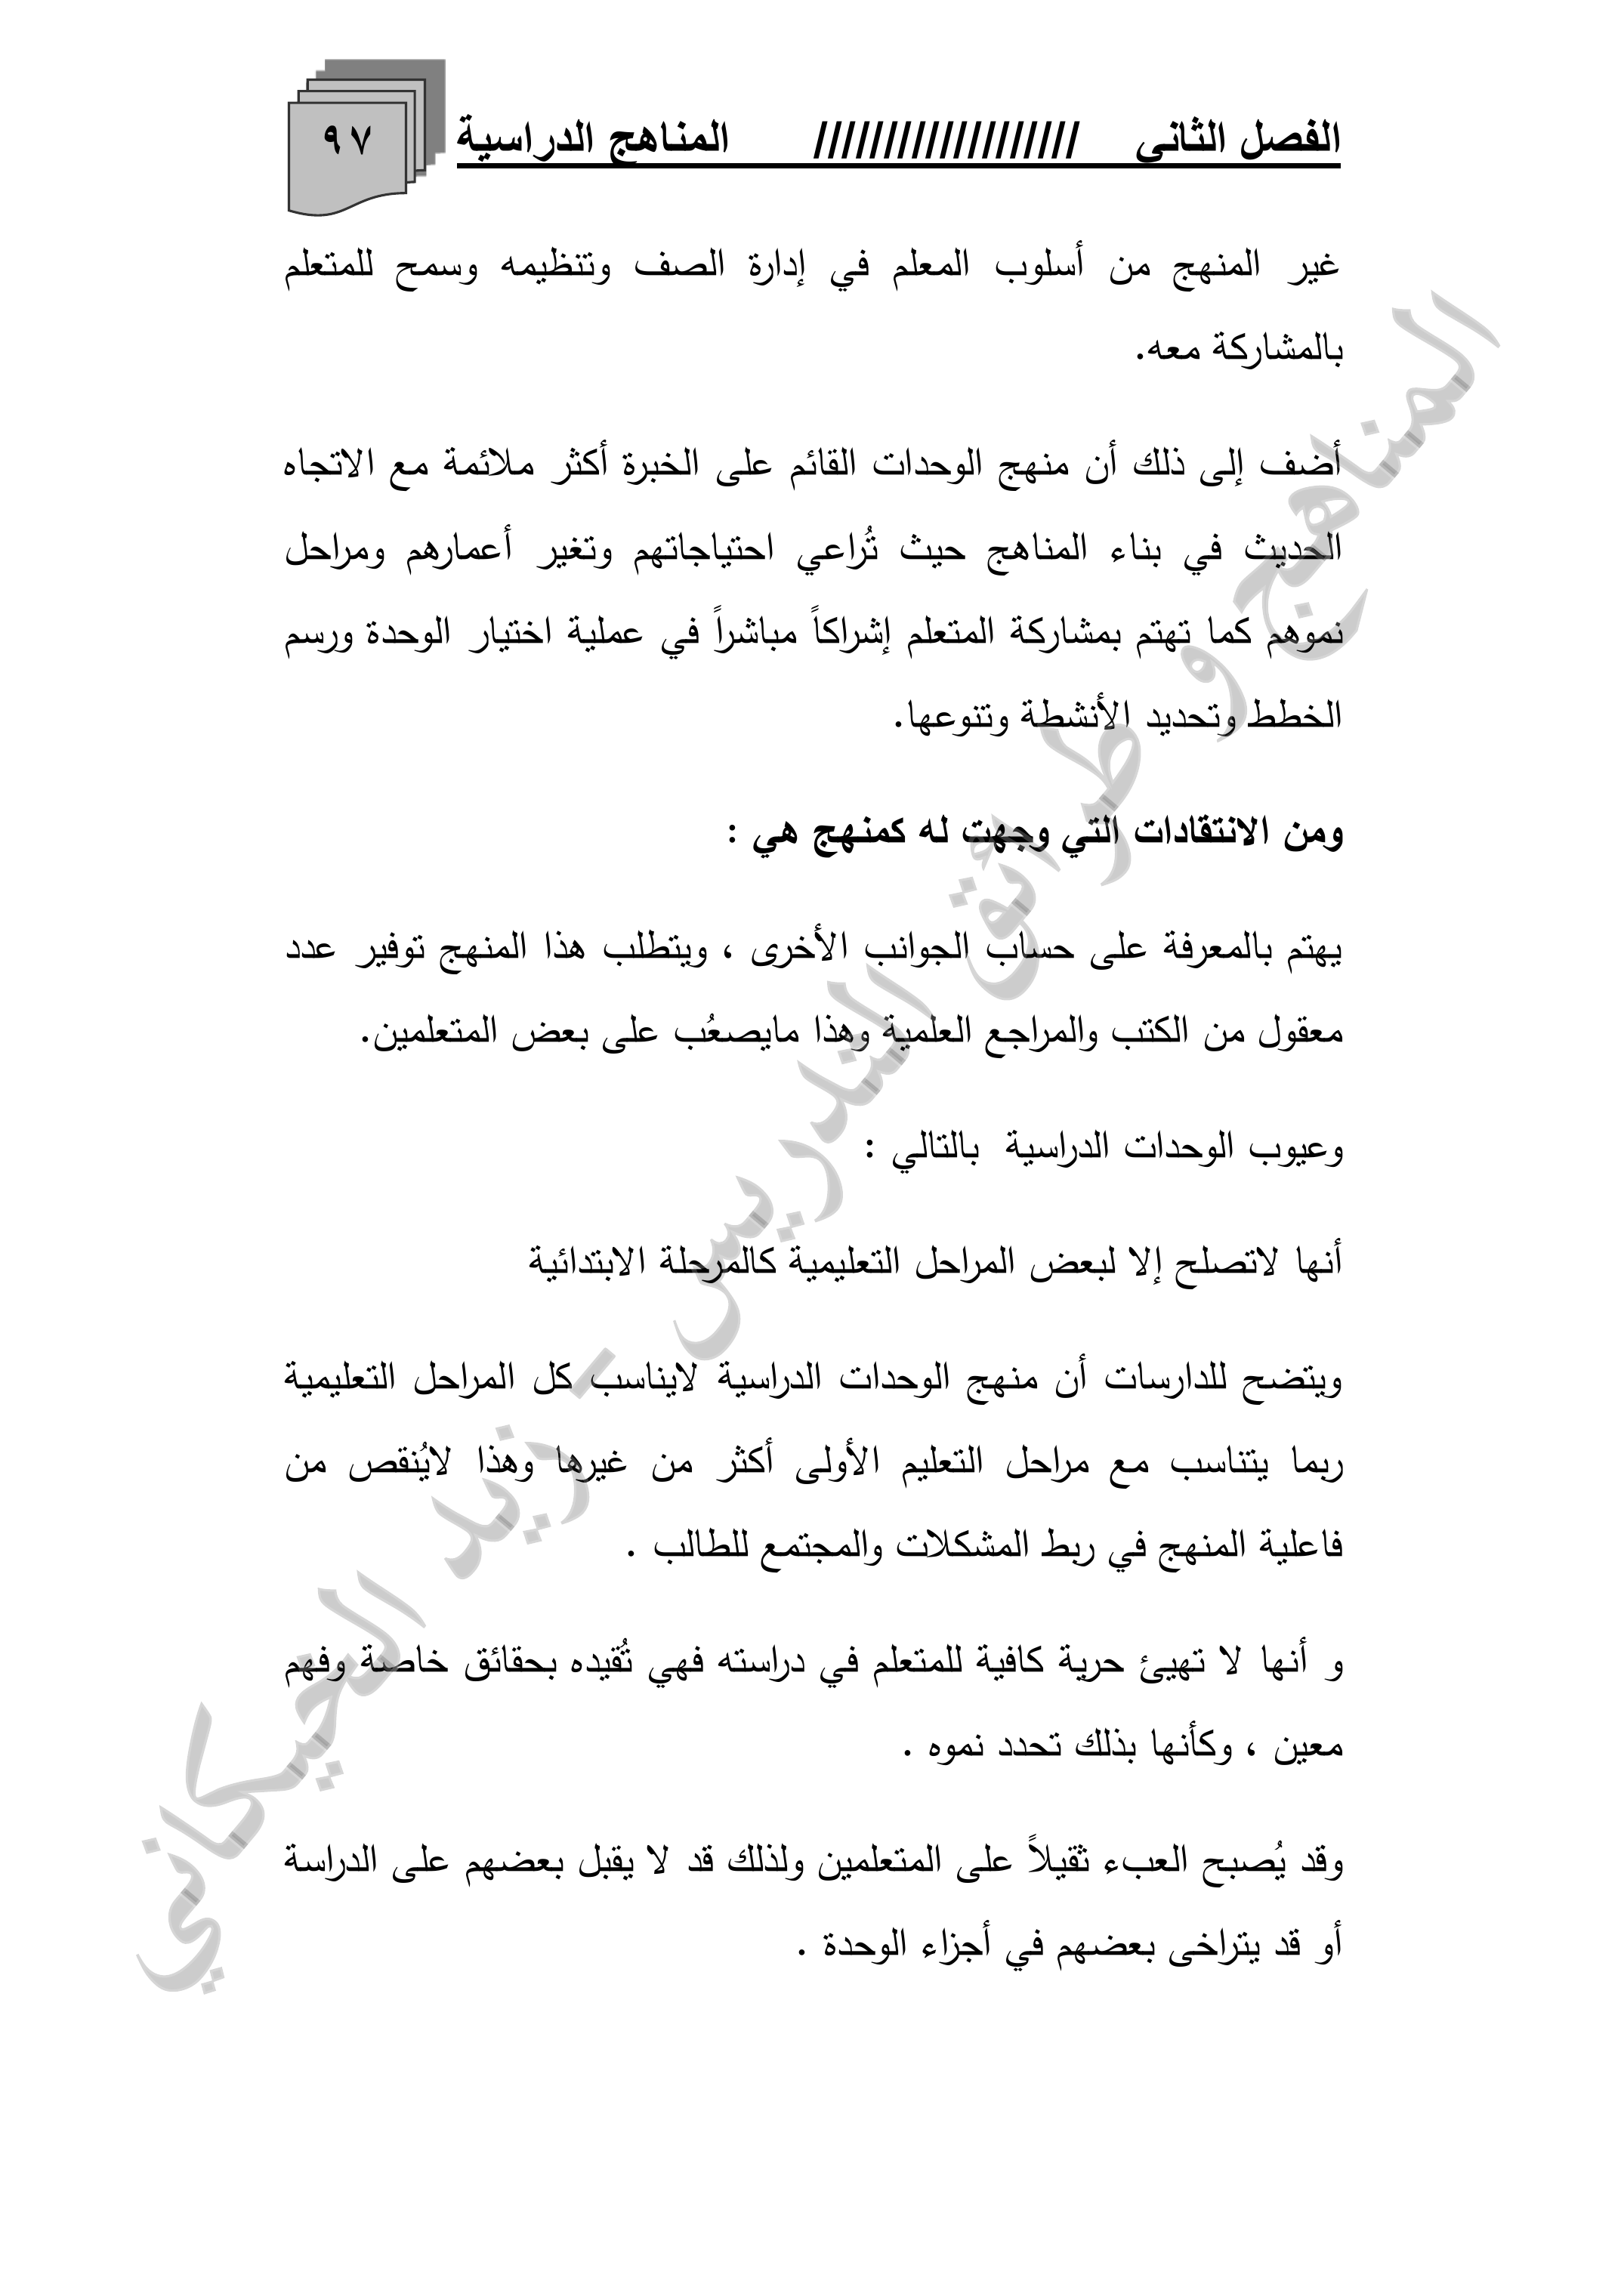 الفصل الثاني /////////////////// المناهج الدراسية ٩٧
غير المنهج من أسلوب المعلم في إدارة الصف وتنظيمه وسمح للمتعلم
بالمشاركة معه.
أضف إلى ذلك أن منهج الوحدات القائم على الخبرة أكثر ملائمة مع الاتجاه
الحديث في بناء المناهج حيث تُراعي احتياجاتهم وتغير أعمارهم ومراحل
نموهم كما تهتم بمشاركة المتعلم إشراكاً مباشراً في عملية اختيار الوحدة ورسم
الخطط وتحديد الأنشطة وتنوعها.
ومن الانتقادات التي وجهت له كمنهج هي :
يهتم بالمعرفة على حساب الجوانب الأخرى ، ويتطلب هذا المنهج توفير عدد
معقول من الكتب والمراجع العلمية وهذا مايصعُب على بعض المتعلمين.
وعيوب الوحدات الدراسية بالتالي :
أنها لاتصلح إلا لبعض المراحل التعليمية كالمرحلة الابتدائية
ويتضح للدارسات أن منهج الوحدات الدراسية لايناسب كل المراحل التعليمية
ربما يتناسب مع مراحل التعليم الأولى أكثر من غيرها وهذا لايُنقص من
فاعلية المنهج في ربط المشكلات والمجتمع للطالب .
و أنها لا تهيئ حرية كافية للمتعلم في دراسته فهي تُقيده بحقائق خاصة وفهم
معين ، وكأنها بذلك تحدد نموه .
وقد يُصبح العبء ثقيلاً على المتعلمين ولذلك قد لا يقبل بعضهم على الدراسة
أو قد يتراخى بعضهم في أجزاء الوحدة .
المناهج و طرائق التدريس - زيد الخيكاني